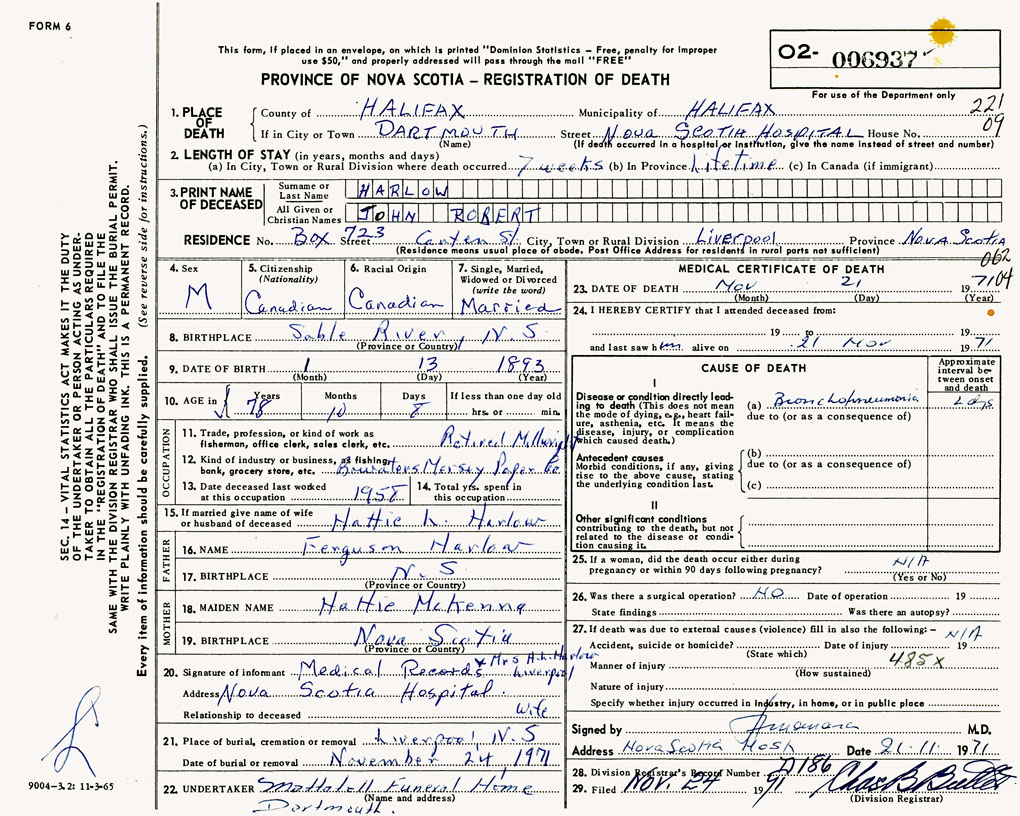 FORM 6
This form, if placed in an envelope, on which is printed "Dominion Statistics – Free, penalty for improper
use $50," and properly addressed will pass through the mail "FREE"
PROVINCE OF NOVA SCOTIA – REGISTRATION OF DEATH
O2- 006937
For use of the Department only
221
09
1. PLACE OF DEATH
County of HALIFAX Municipality of HALIFAX
If in City or Town DARTMOUTH Street NOVA SCOTIA HOSPITAL House No.
(Name) (If death occurred in a hospital or institution, give the name instead of street and number)
2. LENGTH OF STAY (in years, months and days)
(a) In City, Town or Rural Division where death occurred 7 weeks (b) In Province lifetime (c) In Canada (if immigrant)
3. PRINT NAME OF DECEASED
Surname or Last Name HARLOW
All Given or Christian Names JOHN ROBERT
RESIDENCE No. Box 723 Street Canten St. City, Town or Rural Division Liverpool Province NOVA SCOTIA
(Residence means usual place of abode. Post Office Address for residents in rural parts not sufficient)
062
04
4. Sex M
5. Citizenship (Nationality) Canadian
6. Racial Origin Canadian
7. Single, Married, Widowed or Divorced (write the word) Married
8. BIRTHPLACE Sable River, N.S
(Province or Country)
9. DATE OF BIRTH 1 13 1893
(Month) (Day) (Year)
10. AGE in Years 78 Months 10 Days 8 If less than one day old hrs. or min.
OCCUPATION
11. Trade, profession, or kind of work as fisherman, office clerk, sales clerk, etc. Retired Millwright
12. Kind of industry or business, as fishing, bank, grocery store, etc. Bowaters Mersey Paper Co.
13. Date deceased last worked at this occupation 1958
14. Total yrs. spent in this occupation
15. If married give name of wife or husband of deceased Hattie L. Harlow
FATHER
16. NAME Ferguson Harlow
17. BIRTHPLACE N.S
(Province or Country)
MOTHER
18. MAIDEN NAME Hattie McKenna
19. BIRTHPLACE Nova Scotia
(Province or Country)
20. Signature of informant Medical Records & Mrs H.L. Harlow Liverpool
Address Nova Scotia Hospital.
Relationship to deceased Wife
21. Place of burial, cremation or removal Liverpool, N.S
Date of burial or removal November 24, 1971
22. UNDERTAKER Mattatall Funeral Home
(Name and address)
Dartmouth.
MEDICAL CERTIFICATE OF DEATH
23. DATE OF DEATH Nov 21 1971
(Month) (Day) (Year)
24. I HEREBY CERTIFY that I attended deceased from:
19 to 19
and last saw him alive on 21 Nov 1971
CAUSE OF DEATH
Approximate interval between onset and death
I
Disease or condition directly leading to death (This does not mean the mode of dying, e.g., heart failure, asthenia, etc. It means the disease, injury, or complication which caused death.)
(a) Bronchopneumonia 2 dys
due to (or as a consequence of)
Antecedent causes
Morbid conditions, if any, giving rise to the above cause, stating the underlying condition last.
(b)
due to (or as a consequence of)
(c)
II
Other significant conditions
contributing to the death, but not related to the disease or condition causing it.
25. If a woman, did the death occur either during pregnancy or within 90 days following pregnancy? N/A
(Yes or No)
26. Was there a surgical operation? NO Date of operation 19
State findings Was there an autopsy?
27. If death was due to external causes (violence) fill in also the following:– N/A
Accident, suicide or homicide? Date of injury 19
(State which) 485X
Manner of injury
(How sustained)
Nature of injury
Specify whether injury occurred in Industry, in home, or in public place
Signed by M.D.
Address Nova Scotia Hosp. Date 21.11. 1971
28. Division Registrar's Record Number A186
29. Filed NOV. 24 1971 Chas B Butler
(Division Registrar)
SEC. 14 – VITAL STATISTICS ACT MAKES IT THE DUTY
OF THE UNDERTAKER OR PERSON ACTING AS UNDER-
TAKER TO OBTAIN ALL THE PARTICULARS REQUIRED
IN THE "REGISTRATION OF DEATH" AND TO FILE THE
SAME WITH THE DIVISION REGISTRAR WHO SHALL ISSUE THE BURIAL PERMIT.
WRITE PLAINLY WITH UNFADING INK. THIS IS A PERMANENT RECORD.
Every item of information should be carefully supplied. (See reverse side for instructions.)
9004-3.2: 11-3-65